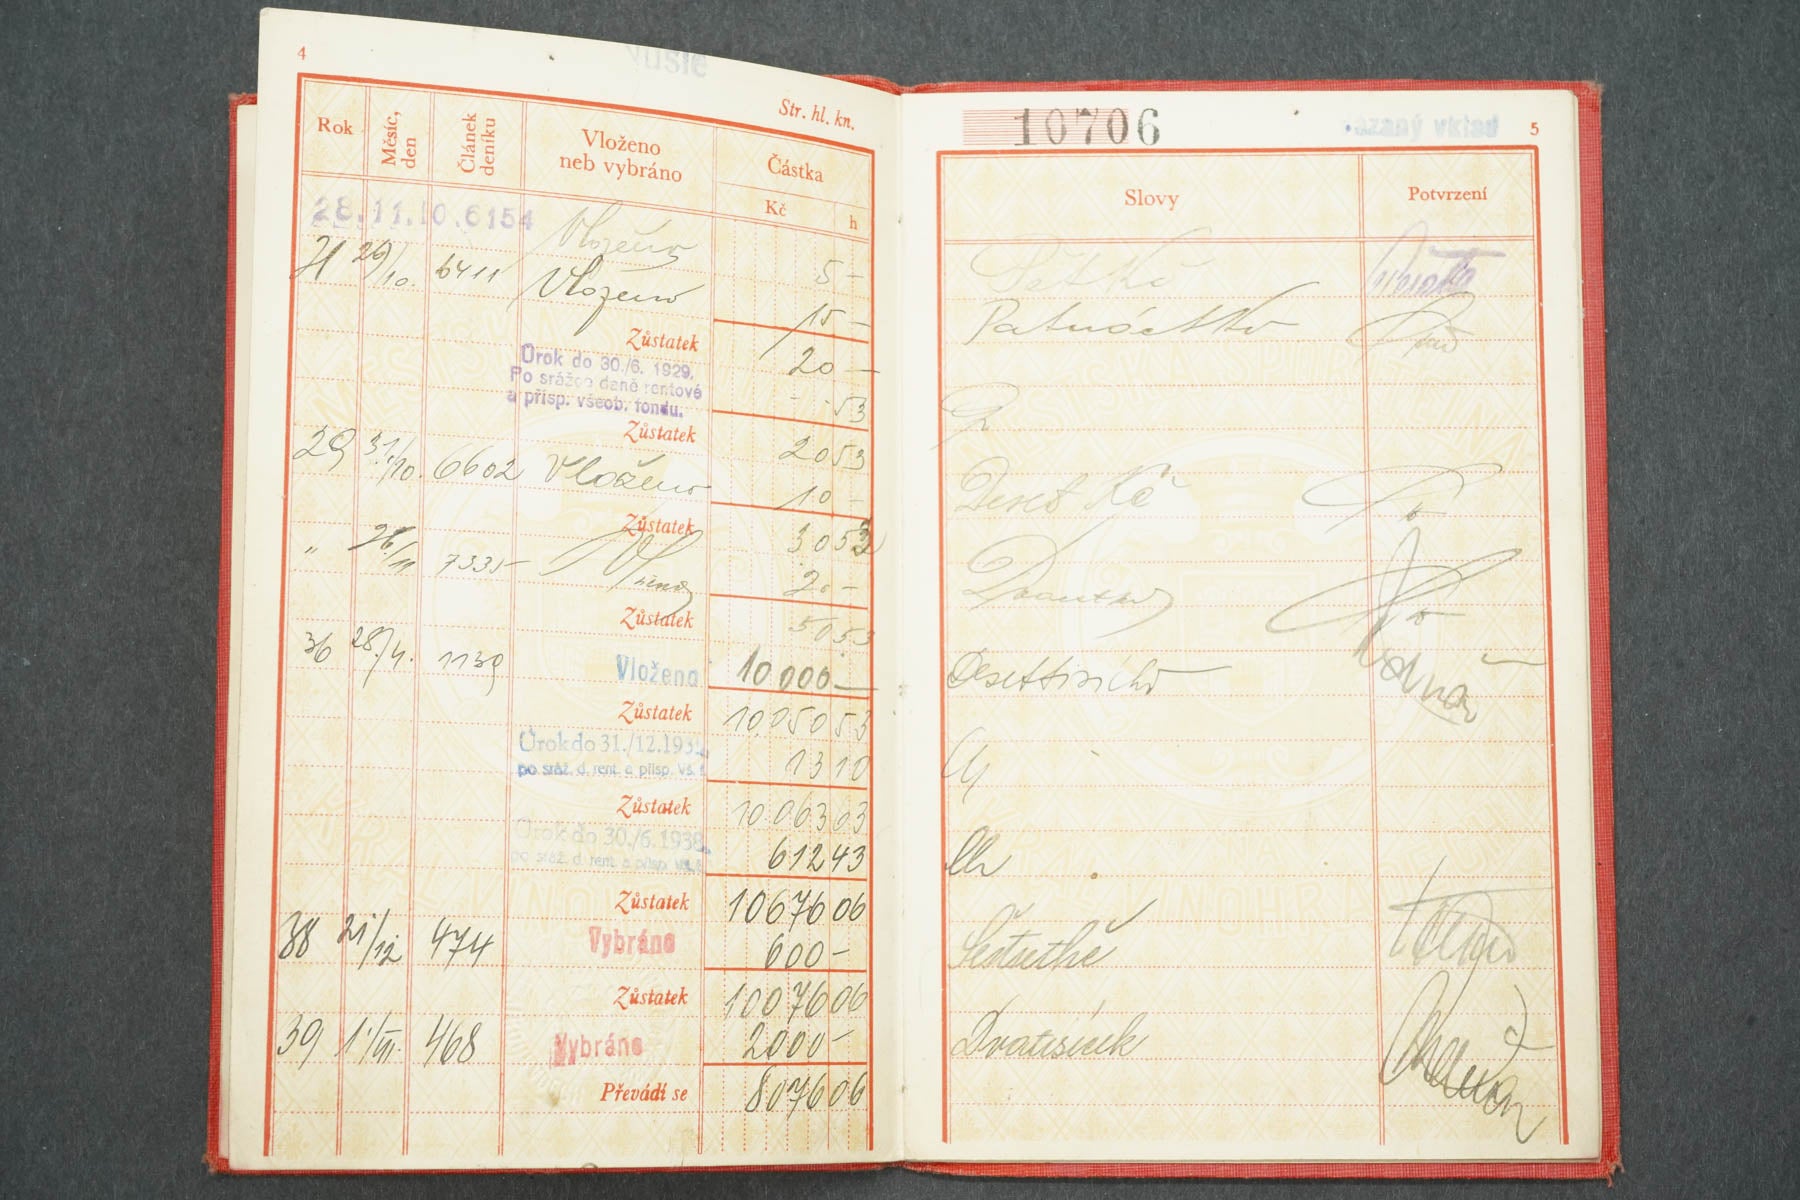 4
Str. hl. kn.
Rok Měsíc, den Článek deníku Vloženo neb vybráno Částka
Kč h
28.11.10.6154 Vloženo 5 –
29/10. 6411 Vloženo 15 –
Zůstatek 20 –
Úrok do 30./6. 1929.
Po srážce daně rentové
a přísp. všeob. fondu. 53
Zůstatek 20 53
29 31/10. 6602 Vloženo 10 –
Zůstatek 30 53
" 26/11 7335 20 –
Zůstatek 50 53
36 28./4. 1139 Vloženo 10000 –
Zůstatek 10.050 53
Úrok do 31./12.193
po sráž. d. rent. a přísp. vš. f. 13 10
Zůstatek 10.063 03
Úrok do 30./6.1938.
po sráž. d. rent. a přísp. vš. f. 612 43
Zůstatek 10676 06
38 21/12 474 Vybráno 600 –
Zůstatek 10076 06
39 1/VII. 468 Vybráno 2000 –
Převádí se 8076 06
10706
vázaný vklad
5
Slovy Potvrzení
Pět Kč
Patnáct Kč
Deset Kč
Desettisíc Kč
Šestset Kč
Dvatisíce Kč